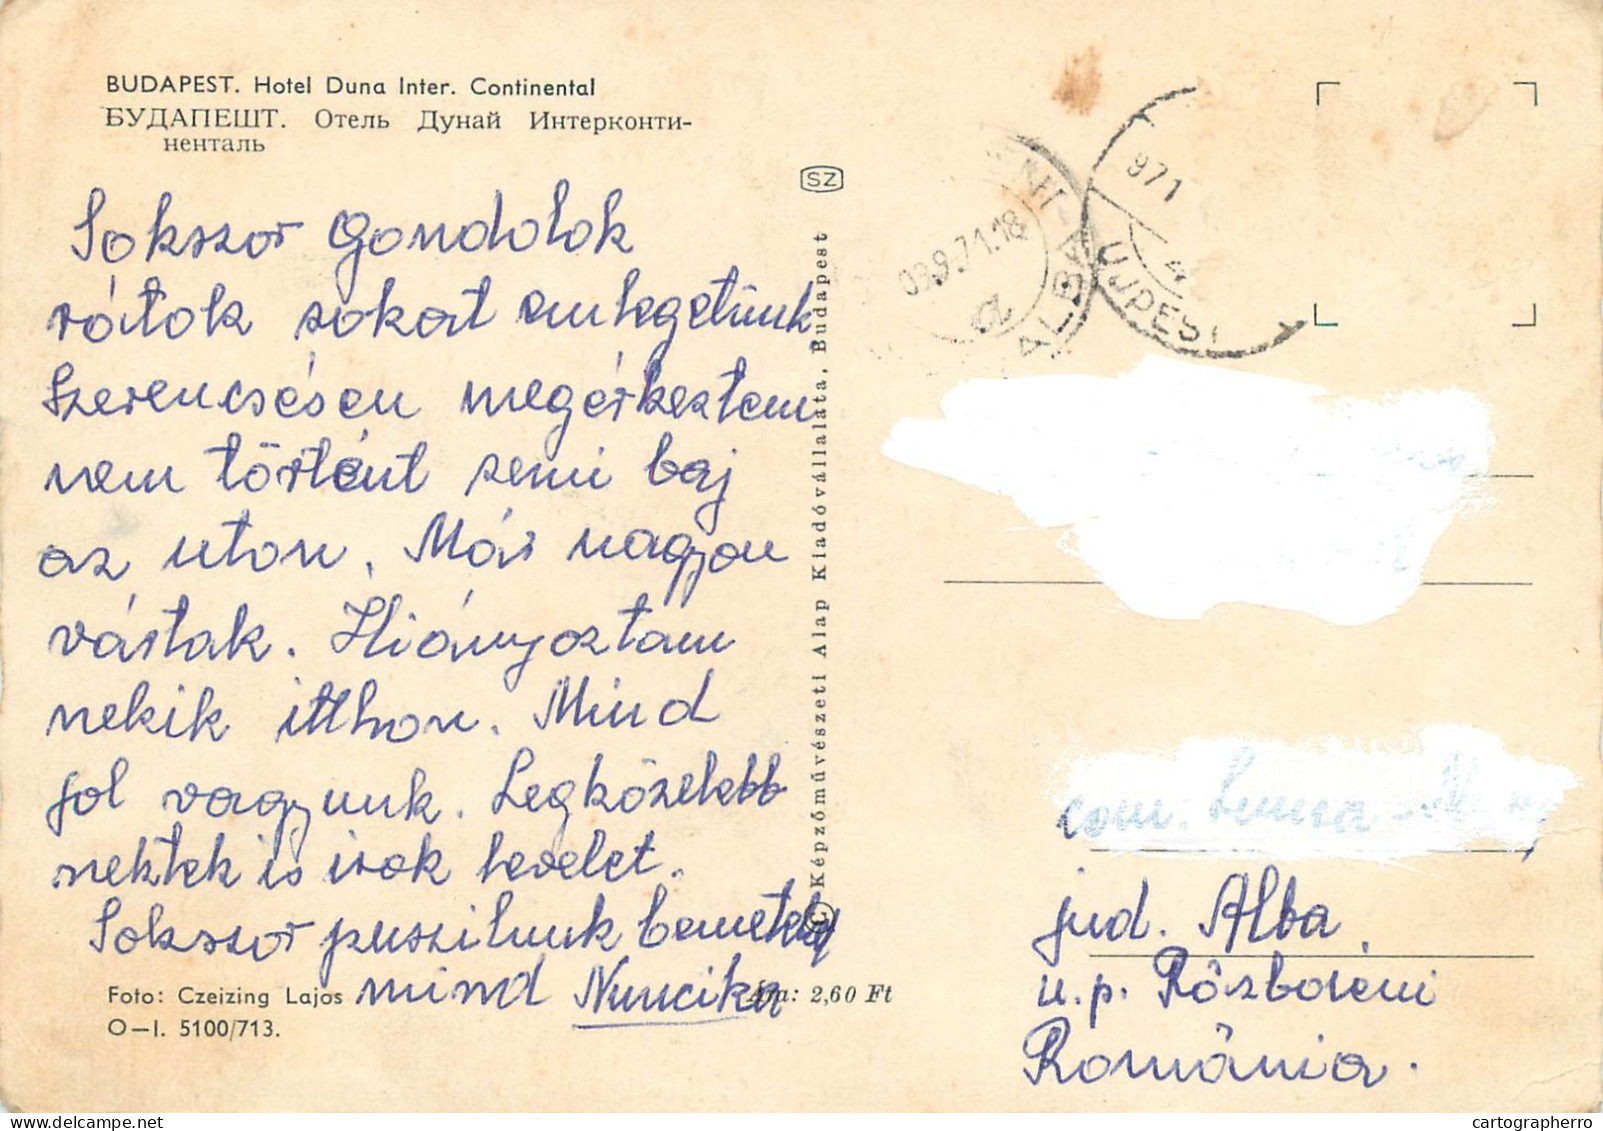 BUDAPEST. Hotel Duna Inter. Continental
БУДАПЕШТ. Отель Дунай Интерконти-
ненталь
Sokszor gondolok
rátok sokat emlegetünk
Szerencsésen megérkeztem
nem történt semi baj
az uton. Már nagyon
vártak. Hiányoztam
nekik itthon. Mind
jol vagyunk. Legközelebb
nektek is irok levelet.
Sokszor puszilunk bemetek
mind Nuncika
Foto: Czeizing Lajos
O—I. 5100/713.
Ára: 2,60 Ft
SZ
© Képzőművészeti Alap Kiadóvállalata, Budapest
03.9.71.18
ALBA
971
UJPEST
com. Lunca-
jud. Alba
u.p. Războieni
România.
cartographerro